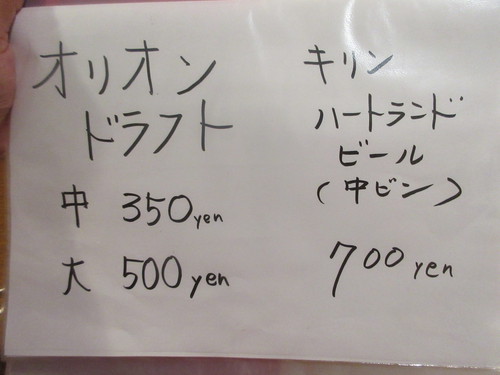 オリオン
ドラフト
中 350yen
大 500yen
キリン
ハートランド
ビール
(中ビン)
700yen